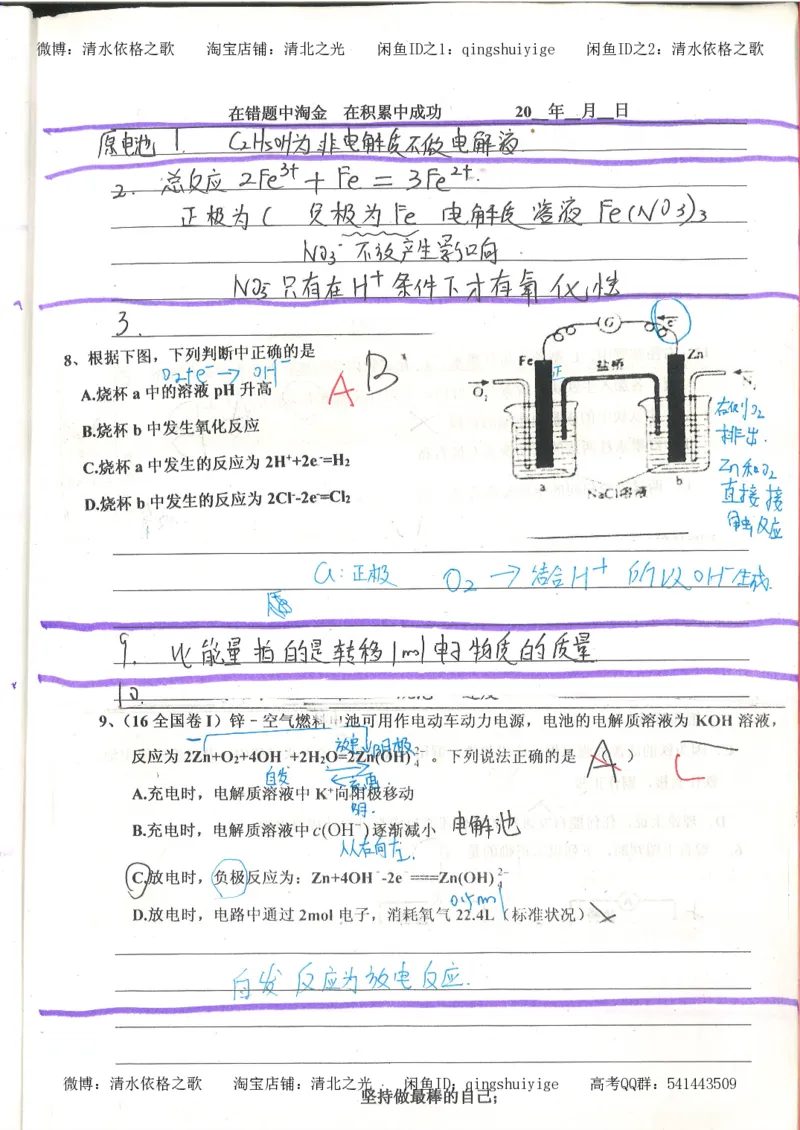 微博：清水依格之歌 淘宝店铺：清北之光 闲鱼ID之1：qingshuiyige 闲鱼ID之2：清水依格之歌
在错题中淘金 在积累中成功 20__年__月__日
原电池 1. C2H5OH为非电解质不做电解液
2. 总反应 2Fe³⁺ + Fe = 3Fe²⁺.
正极为C 负极为Fe 电解质溶液 Fe(NO3)3
NO3⁻ 不放产生影响
NO3⁻只有在H⁺条件下才有氧化性
3.
8、根据下图，下列判断中正确的是
O2+e⁻→OH⁻
A B
A.烧杯 a 中的溶液 pH 升高
B.烧杯 b 中发生氧化反应
C.烧杯 a 中发生的反应为 2H⁺+2e⁻=H₂
D.烧杯 b 中发生的反应为 2Cl⁻-2e⁻=Cl₂
G e⁻
Fe 正 盐桥 Zn
O₂ N₂
a NaCl溶液 b
右侧O2
排出.
Zn和O2
直接接
触反应
a:正极 O2 → 结合H⁺ 所以OH⁻生成.
9. 比能量指的是转移1mol电子物质的质量
10.
9、（16 全国卷 I）锌－空气燃料电池可用作电动车动力电源，电池的电解质溶液为 KOH 溶液，
反应为 2Zn+O₂+4OH⁻+2H₂O=2Zn(OH)₄²⁻。下列说法正确的是（ A ） C
放电 阳极
自发
A.充电时，电解质溶液中 K⁺向阳极移动
B.充电时，电解质溶液中c(OH⁻)逐渐减小 电解池
从右向左.
C.放电时，负极反应为：Zn+4OH⁻-2e⁻====Zn(OH)₄²⁻
0.5mol
D.放电时，电路中通过 2mol 电子，消耗氧气 22.4L（标准状况）
自发反应为放电反应.
微博：清水依格之歌 淘宝店铺：清北之光 闲鱼ID：qingshuiyige 高考QQ群：541443509
坚持做最棒的自己；